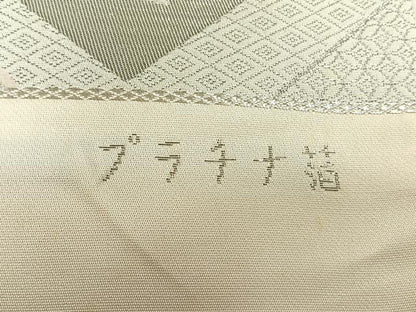 プラチナ箔